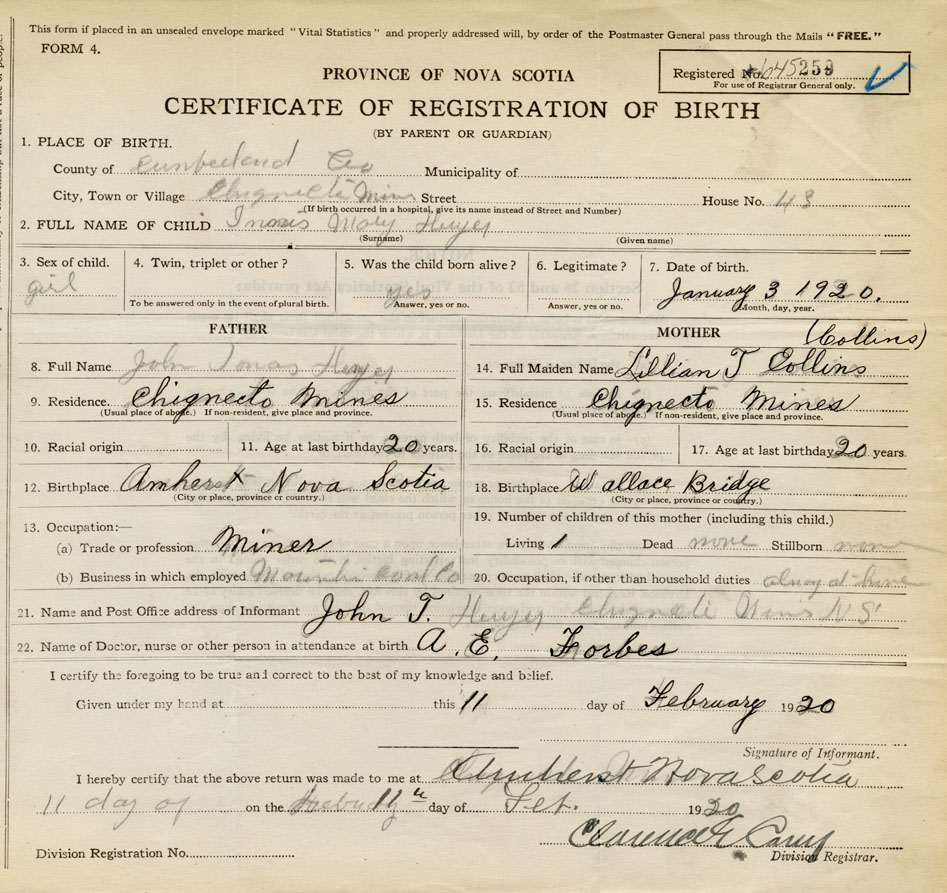 This form if placed in an unsealed envelope marked "Vital Statistics" and properly addressed will, by order of the Postmaster General pass through the Mails "FREE."
FORM 4.
Registered No. 645259
For use of Registrar General only.
PROVINCE OF NOVA SCOTIA
CERTIFICATE OF REGISTRATION OF BIRTH
(BY PARENT OR GUARDIAN)
1. PLACE OF BIRTH.
County of Cumberland Co Municipality of
City, Town or Village Chignecto Mines Street House No. 43
(If birth occurred in a hospital, give its name instead of Street and Number)
2. FULL NAME OF CHILD Mary
(Surname) (Given name)
3. Sex of child. 4. Twin, triplet or other? 5. Was the child born alive? 6. Legitimate? 7. Date of birth.
girl yes January 3 1920.
To be answered only in the event of plural birth. Answer, yes or no. Answer, yes or no. Month, day, year.
FATHER MOTHER (Collins)
8. Full Name John 14. Full Maiden Name Lillian T Collins
9. Residence Chignecto Mines 15. Residence Chignecto Mines
(Usual place of abode.) If non-resident, give place and province. (Usual place of abode.) If non-resident, give place and province.
10. Racial origin 11. Age at last birthday 20 years. 16. Racial origin 17. Age at last birthday 20 years.
12. Birthplace Amherst Nova Scotia 18. Birthplace Wallace Bridge
(City or place, province or country.) (City or place, province or country.)
13. Occupation:— 19. Number of children of this mother (including this child.)
(a) Trade or profession Miner Living 1 Dead none Stillborn none
(b) Business in which employed 20. Occupation, if other than household duties at home
21. Name and Post Office address of Informant John T. N S
22. Name of Doctor, nurse or other person in attendance at birth A. E. Forbes
I certify the foregoing to be true and correct to the best of my knowledge and belief.
Given under my hand at this 11 day of February 1920
Signature of Informant.
I hereby certify that the above return was made to me at Amherst Nova Scotia
11 day of on the 11th day of Feb. 1920
Clarence
Division Registration No. Division Registrar.